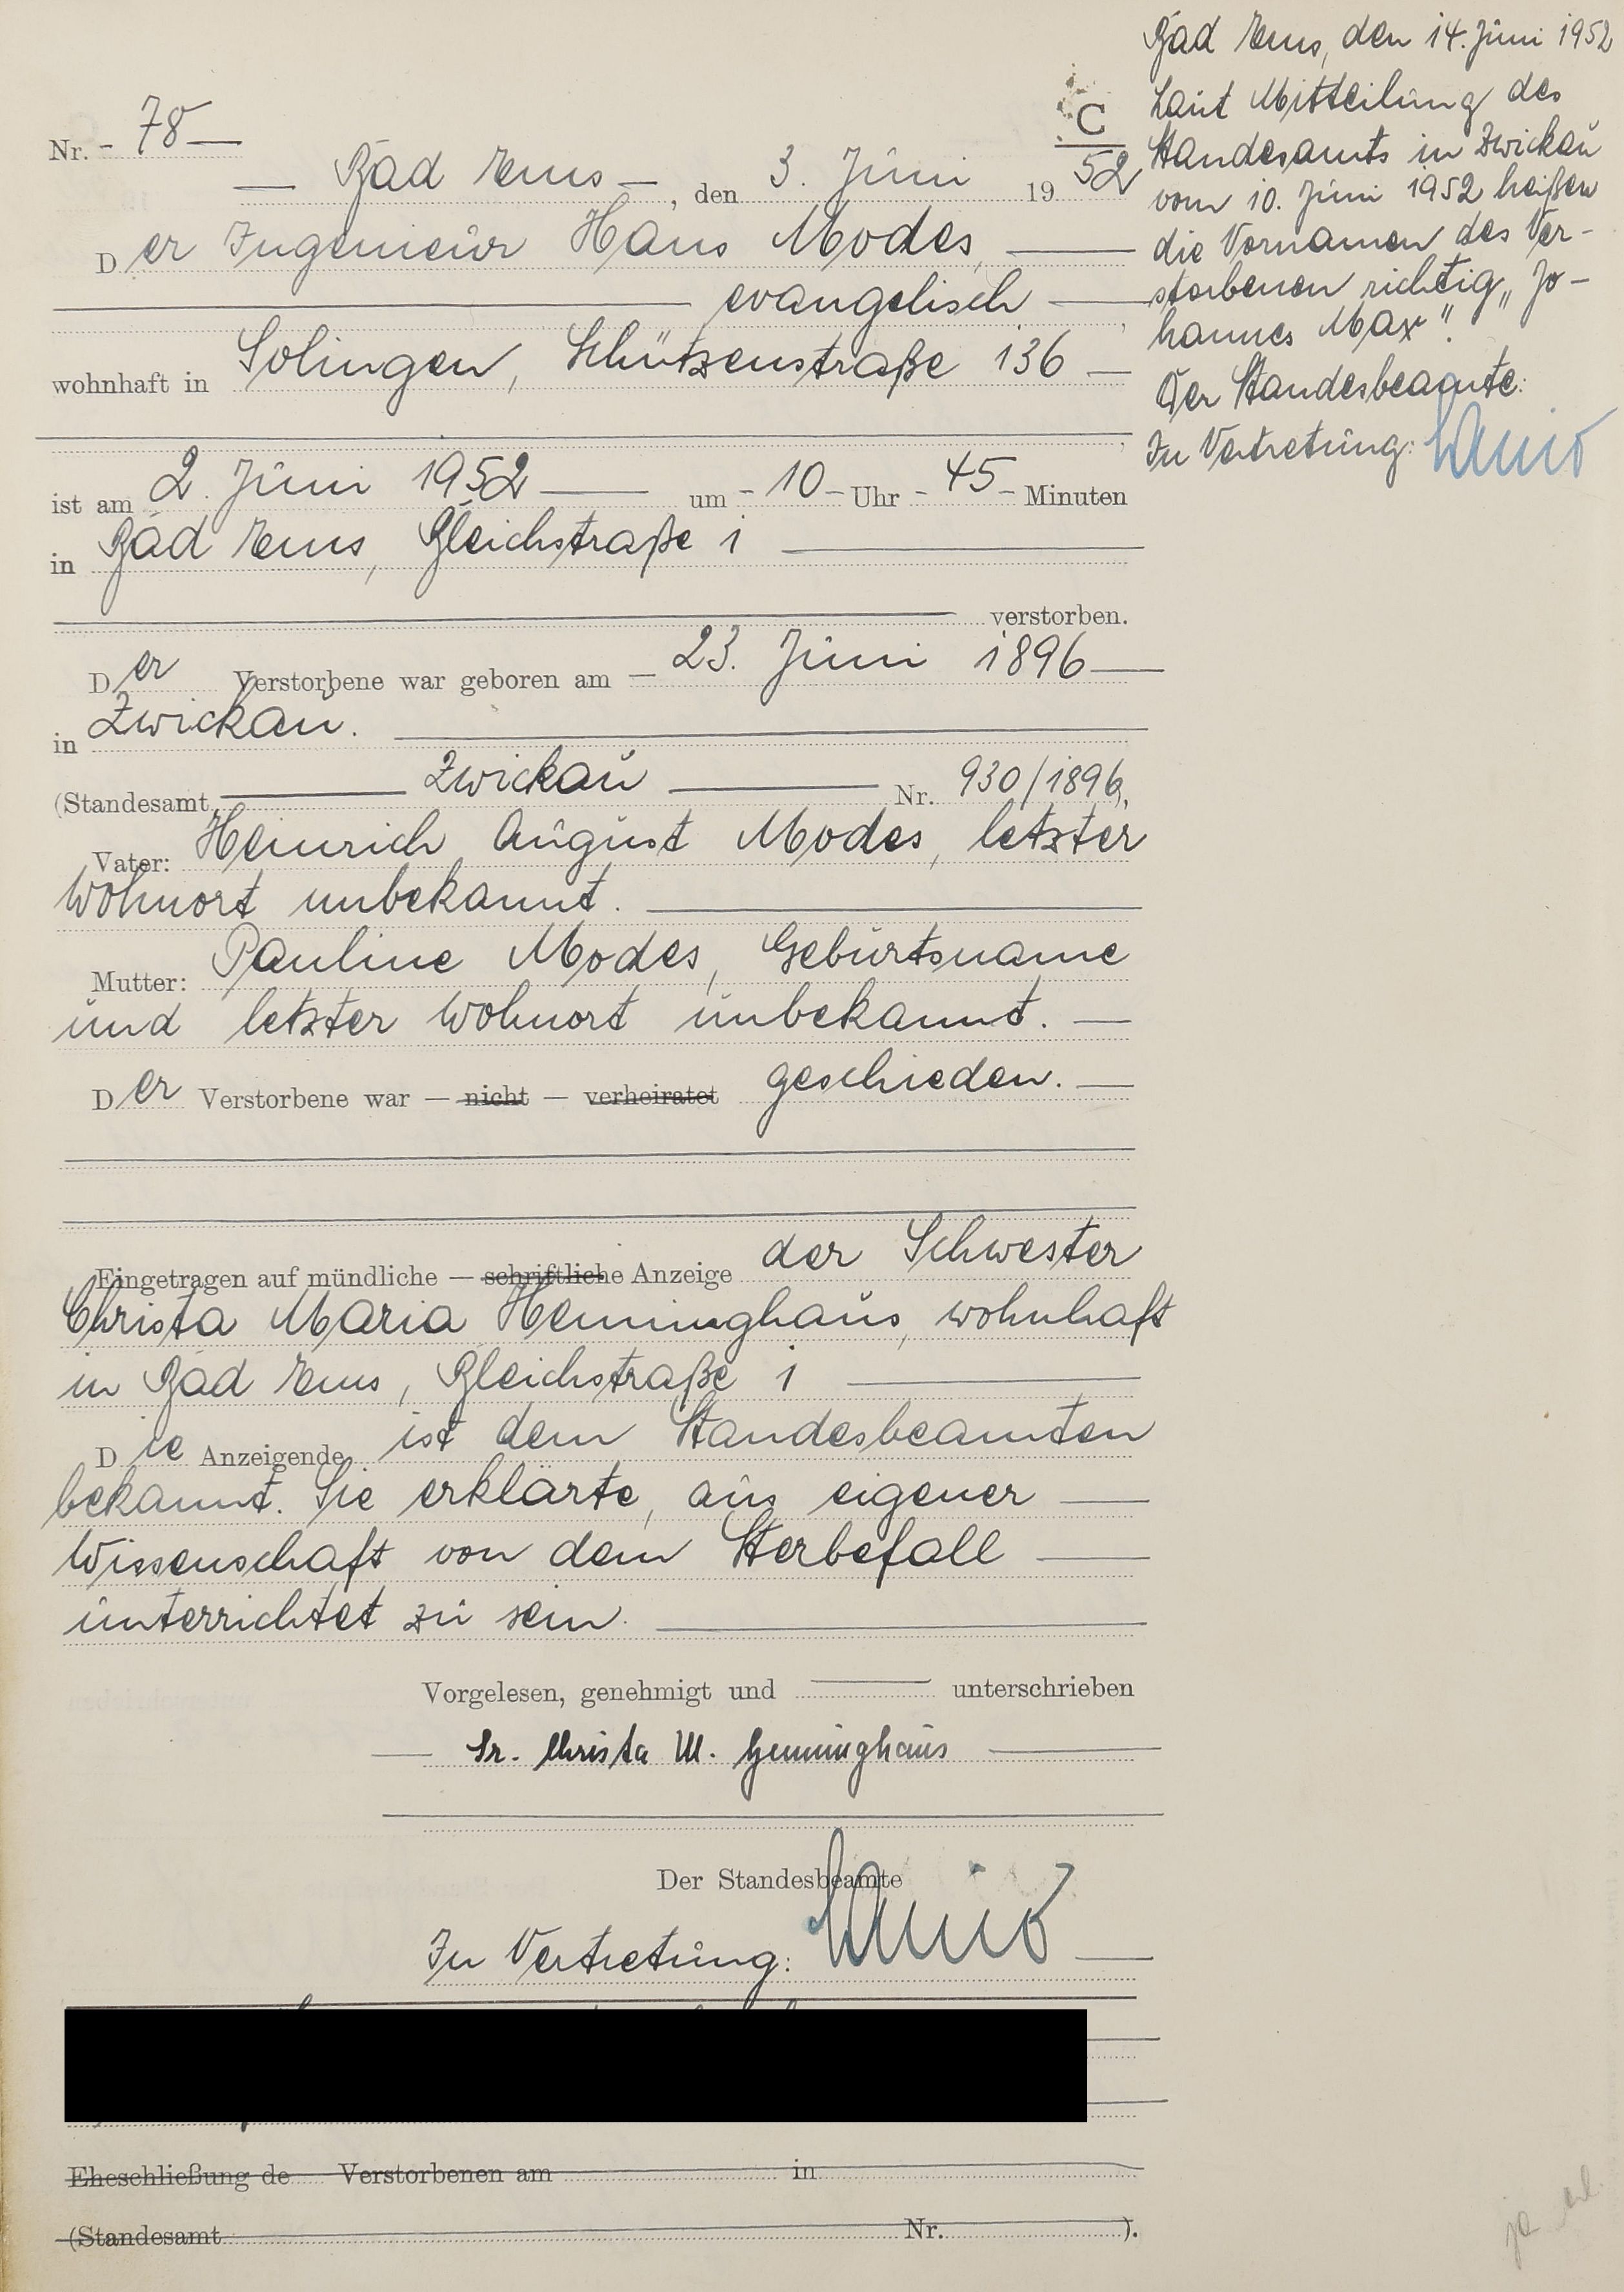 Nr. - 78 -
C
- Bad Ems -, den 3. Juni 1952
Der Ingenieur Hans Modes,
evangelisch
wohnhaft in Solingen, Schützenstraße 136
ist am 2. Juni 1952 um - 10 - Uhr - 45 - Minuten
in Bad Ems, Bleichstraße 1
verstorben.
Der Verstorbene war geboren am - 23. Juni 1896
in Zwickau.
(Standesamt Zwickau Nr. 930/1896),
Vater: Heinrich August Modes, letzter
Wohnort unbekannt.
Mutter: Pauline Modes, Geburtsname
und letzter Wohnort unbekannt.
Der Verstorbene war — nicht — verheiratet geschieden.
Eingetragen auf mündliche — schriftliche Anzeige der Schwester
Christa Maria Henninghaus, wohnhaft
in Bad Ems, Bleichstraße 1
Die Anzeigende ist dem Standesbeamten
bekannt. Sie erklärte, aus eigener
Wissenschaft von dem Sterbefall
unterrichtet zu sein.
Vorgelesen, genehmigt und unterschrieben
Sr. Christa M. Henninghaus
Der Standesbeamte
In Vertretung:
Eheschließung de Verstorbenen am in
(Standesamt Nr. ).
Bad Ems, den 14. Juni 1952
Laut Mitteilung des
Standesamts in Zwickau
vom 10. Juni 1952 heißen
die Vornamen des Ver-
storbenen richtig „Jo-
hannes Max".
Der Standesbeamte:
In Vertretung: